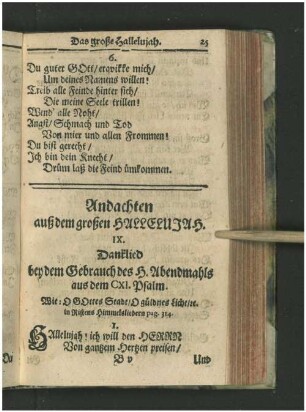 Das große Hallelujah. 25
6.
Du guter GOtt/ erqvikke mich/
Um deines Namens willen!
Treib alle Feinde hinter sich/
Die meine Seele trillen!
Wend' alle Noht/
Angst/ Schmach und Tod
Von mier und allen Frommen!
Du bist gerecht/
Ich bin dein Knecht/
Drüm laß die Feind ümkommen.
Andachten
auß dem großen HALLELUJAH.
IX.
Danklied
bey dem Gebrauch des H. Abendmahls
aus dem CXI. Psalm.
Wie: O GOttes Stadt/ O güldnes Licht/ ec.
in Ristens Himmelsliedern pag. 314.
1.
HAllelujah! ich will den HERRN
Von gantzem Hertzen preisen/
B v Und